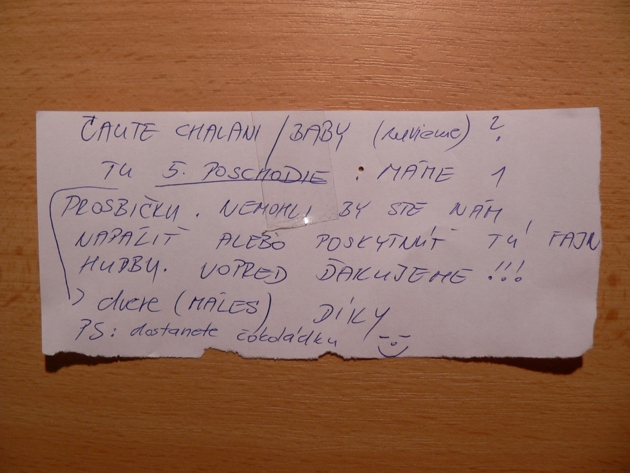 ČAUTE CHALANI/BABY (nevieme) ?
TU 5. POSCHODIE : MÁME 1
PROSBIČKU. NEMOHLI BY STE NÁM
NAPÁLIŤ ALEBO POSKYTNÚŤ TÚ FAJN
HUDBU. VOPRED ĎAKUJEME !!!
> dvere (MÁLES) DÍKY
PS: dostanete čokoládku